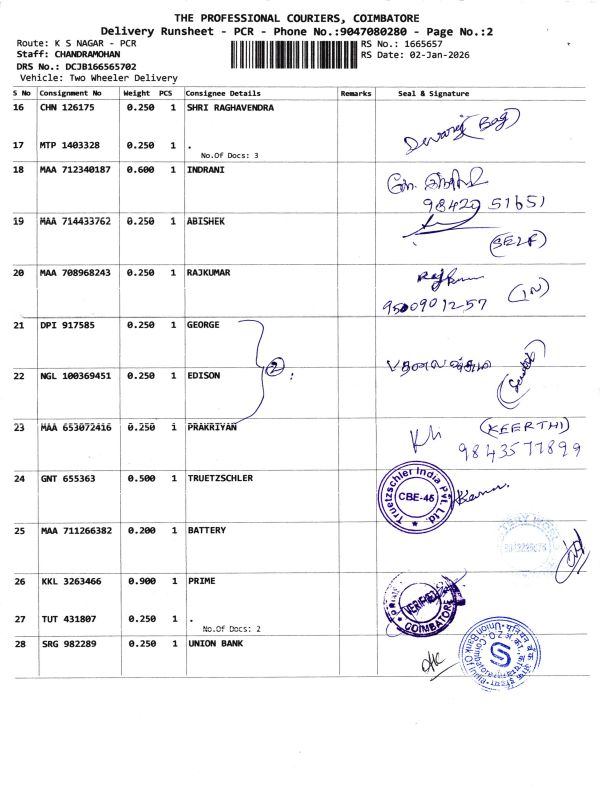 THE PROFESSIONAL COURIERS, COIMBATORE
Delivery Runsheet - PCR - Phone No.:9047080280 - Page No.:2
Route: K S NAGAR - PCR
RS No.: 1665657
Staff: CHANDRAMOHAN
RS Date: 02-Jan-2026
DRS No.: DCJB166565702
Vehicle: Two Wheeler Delivery
S No Consignment No Weight PCS Consignee Details Remarks Seal & Signature
16 CHN 126175 0.250 1 SHRI RAGHAVENDRA
Devaraj (Bag)
17 MTP 1403328 0.250 1 .
No.Of Docs: 3
18 MAA 712340187 0.600 1 INDRANI
98420 51651
19 MAA 714433762 0.250 1 ABISHEK
(SELF)
20 MAA 708968243 0.250 1 RAJKUMAR
(IN)
9500901257
21 DPI 917585 0.250 1 GEORGE
2
22 NGL 100369451 0.250 1 EDISON
23 MAA 653072416 0.250 1 PRAKRIYAN
(KEERTHI)
9843577899
24 GNT 655363 0.500 1 TRUETZSCHLER
Truetzschler India Pvt. Ltd.
CBE-45
25 MAA 711266382 0.200 1 BATTERY
26 KKL 3263466 0.900 1 PRIME
VERIFIED
COIMBATORE
27 TUT 431807 0.250 1 .
No.Of Docs: 2
28 SRG 982289 0.250 1 UNION BANK
Union Bank Of India